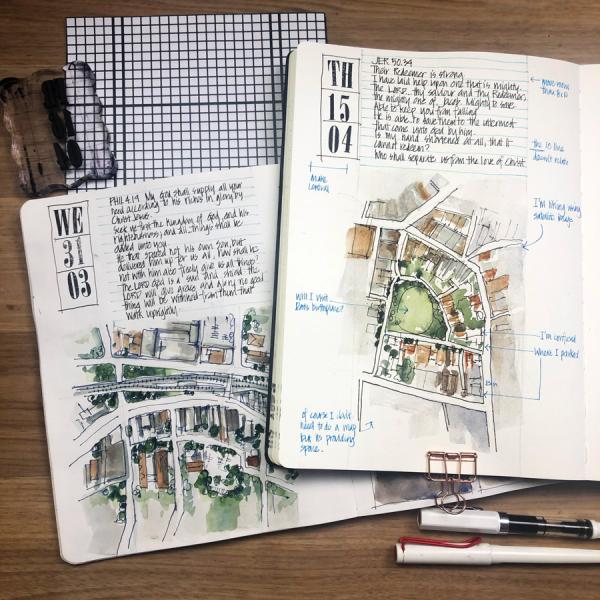 WE
31
03
PHIL 4.19. My God shall supply all your
need according to his riches in glory by
Christ Jesus.
Seek ye first the kingdom of God, and his
righteousness, and all things shall be
added unto you.
He that spared not his own son, but
delivered him up for us all, how shall he
not with him also freely give us all things?
The LORD God is a sun and shield: the
LORD will give grace and glory: no good
thing will be withheld from them that
walk uprightly.
TH
15
04
JER 50.34
Their Redeemer is strong.
I have laid help upon one that is mighty.
The LORD... thy saviour and thy Redeemer,
the mighty one of Jacob. Mighty to save.
Able to keep you from falling.
He is able to save them to the uttermost
that come unto God by him.
Is my hand shortened at all, that it
cannot redeem?
Who shall separate us from the love of Christ
make
the 10 line
doesn't
I'm liking using
Will I visit
birthplace?
I'm confused
Where I parked
of course I didn't
need to do a map
but its providing
space.